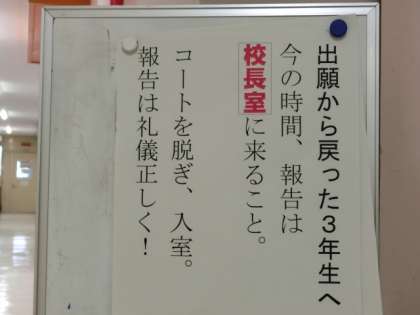 出願から戻った3年生へ
今の時間、報告は
校長室に来ること。
コートを脱ぎ、入室。
報告は礼儀正しく！